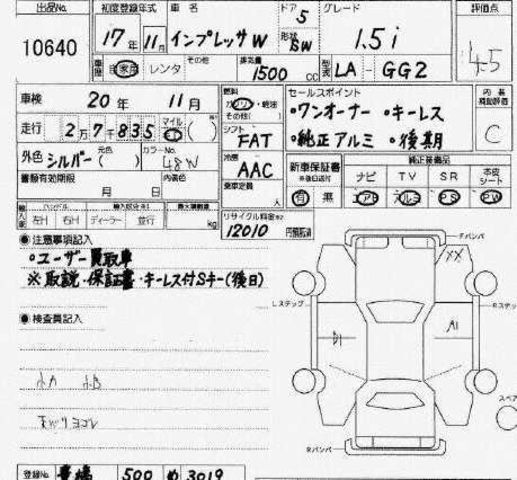 出品No. 初度登録年式 車名 ドア 5 グレード 評価点
10640 17年 11月 インプレッサW 形状 SW 1.5i 4.5
車歴 自家用 レンタ その他 排気量 1500 cc 型式 LA - GG2
車検 20年 11月 燃料 ガソリン・軽油 その他( ) セールスポイント 内装補助評価
走行 2万7千835 マイル ( ) シフト FAT ・ワンオーナー ・キーレス C
・純正アルミ ・後期
外色 シルバー 元色( ) カラーNo. 48W 冷房 AAC 新車保証書 純正装備品
ナビ TV SR 本皮シート
書類有効期限 月 日 内装色 乗定員 人 有 無 エアB アルミ PS PW
左H 右H ディーラー 並行 最大積載量 kg リサイクル料金
12010 円預託済
注意事項記入
・ユーザー買取車
※取説・保証書・キーレス付Sキー(後日)
検査員記入
小A 小B
Fバンパ
XX
Lステップ Rステップ
B1 A1
スペア
Rバンパ
登録No. 豊橋 500 め 3019